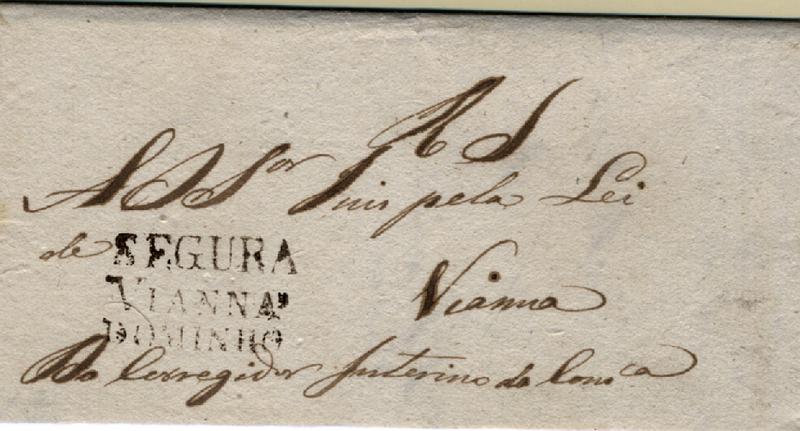 R S
A S Sor Juis pela Lei
de
SEGURA
VIANNA
DOMINHO
Vianna
Do Corregidor Interino da Comca